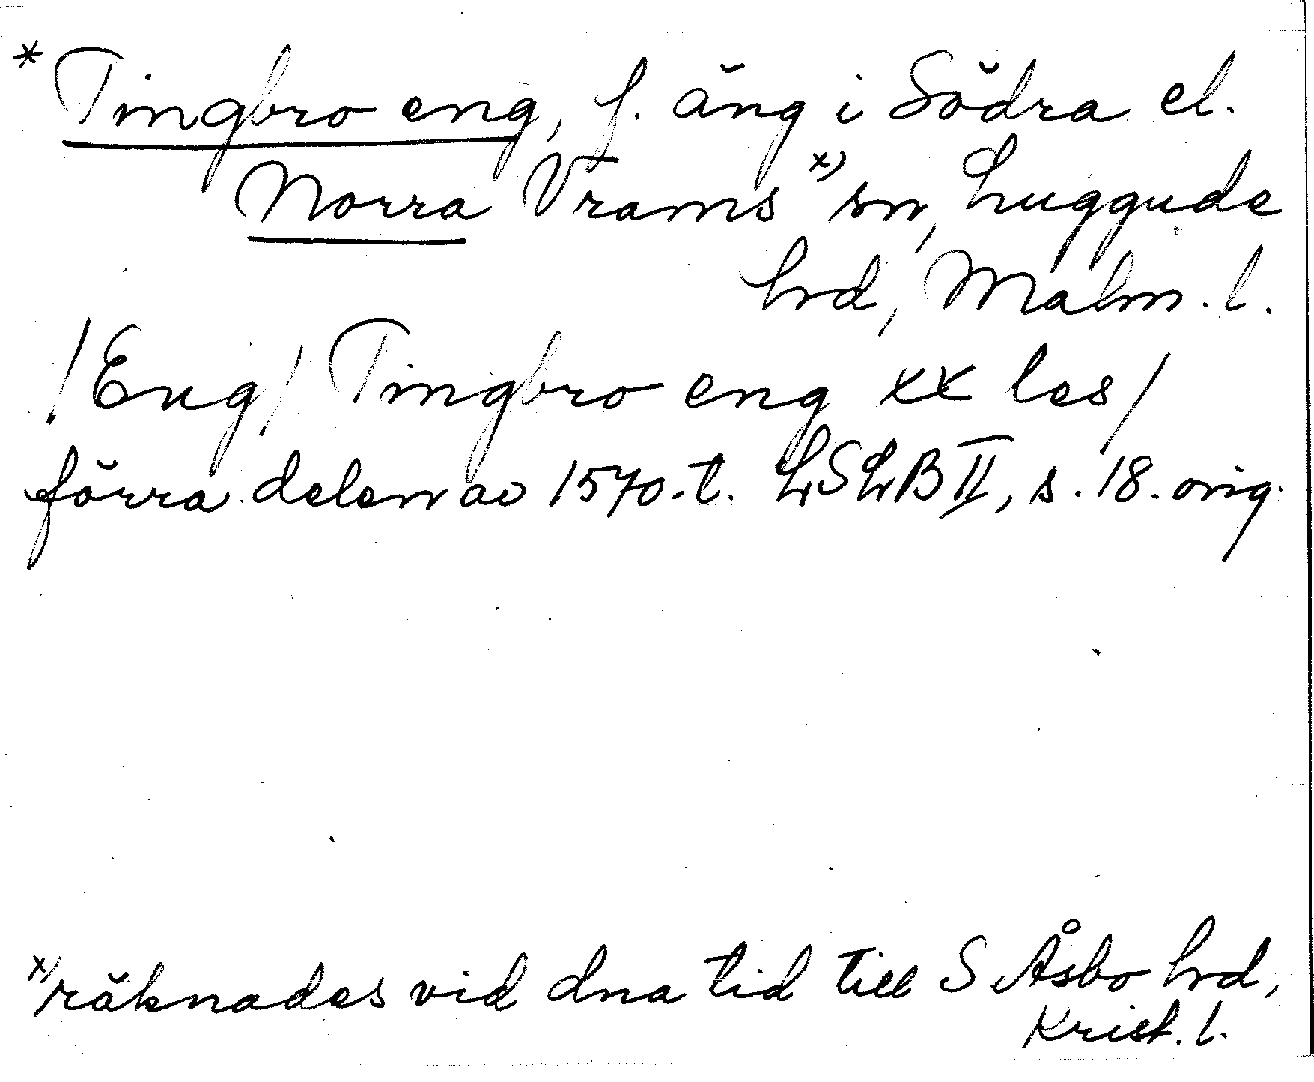 * Tingbro eng, f. äng i Södra el.
Norra Vrams x) sn, Luggude
hrd, Malm. l.
/Eng/ Tingbro eng xx les/
förra delen av 1570-t. LSLB II, s. 18. orig.
x) räknades vid dna tid till S Åsbo hrd,
Krist. l.